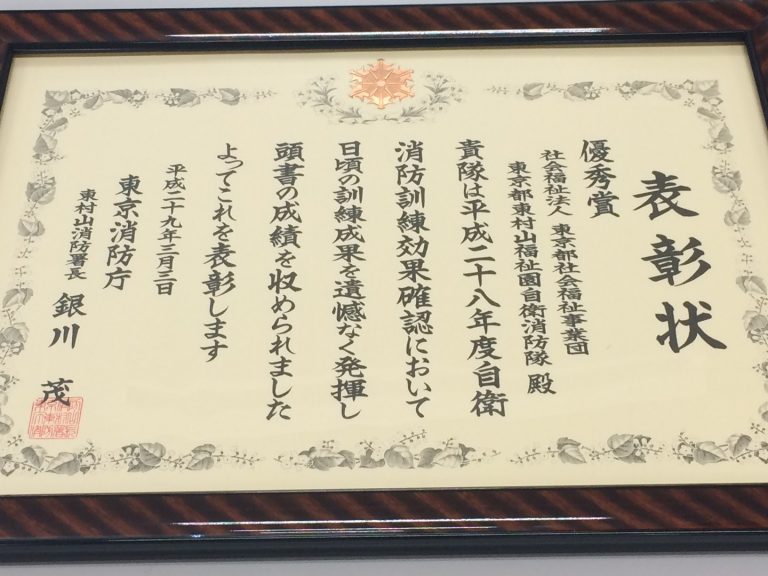 表彰状
優秀賞
社会福祉法人 東京都社会福祉事業団
東京都東村山福祉園自衛消防隊 殿
貴隊は平成二十八年度自衛
消防訓練効果確認において
日頃の訓練成果を遺憾なく発揮し
頭書の成績を収められました
よってこれを表彰します
平成二十九年三月三日
東京消防庁
東村山消防署長 銀川 茂